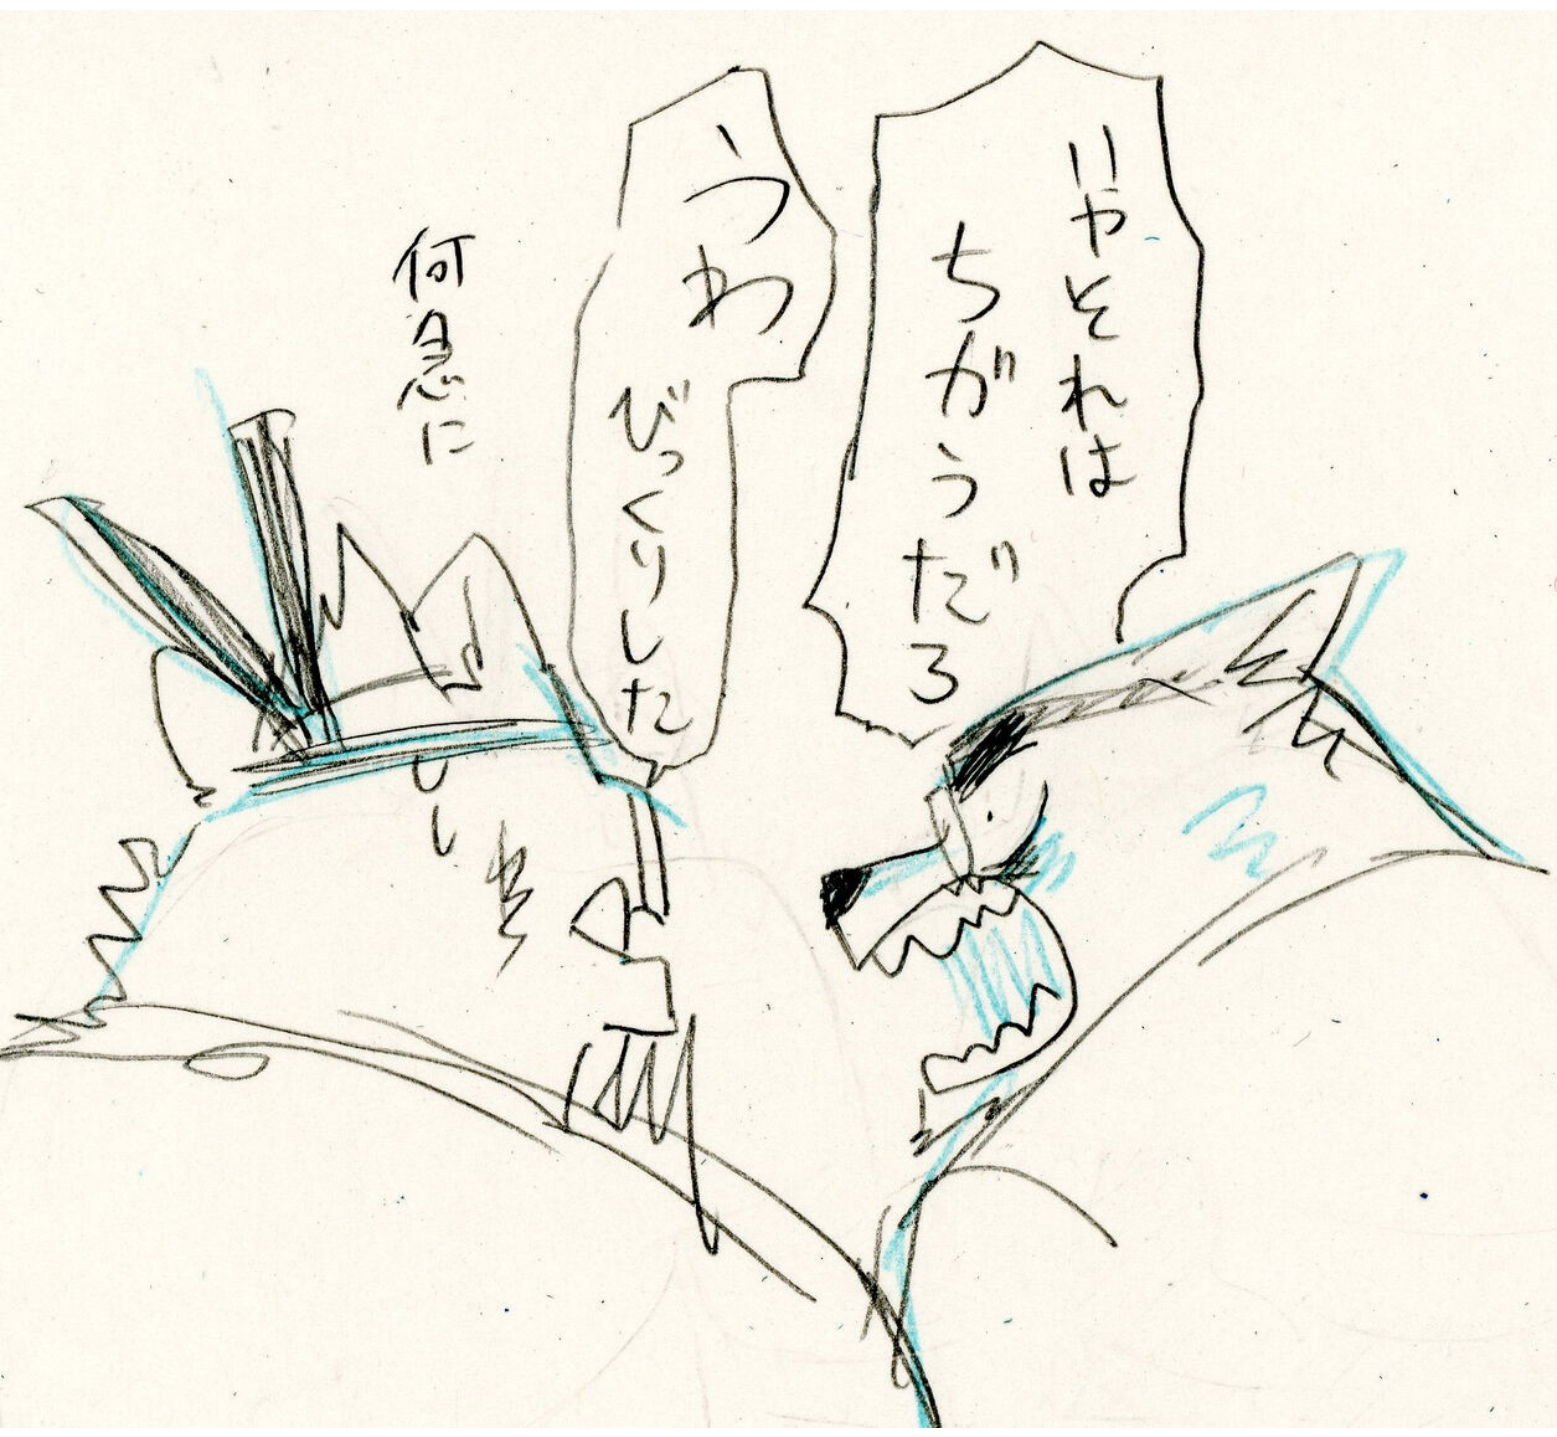 いやそれは
ちがうだろ
うわ
びっくりした
何急に